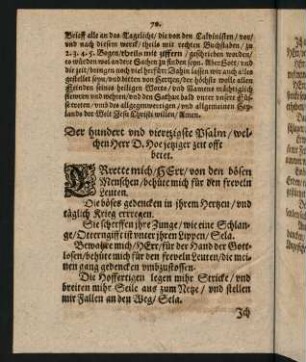 70.
alle an das Tageliche/ die von den Calvinisten/ von/
und nach diesem werck/ theils mit rechten Buchstaben/ zu
2. 3. 4. 5. Bogen/ theils mit ziffern/ geschrieben worden/
es würden wol andere Sachen zu finden seyn. Aber Gott/ und
die zeit/ bringen noch viel herfür: Dahin lassen wir auch alles
gestellet seyn/ und bitten von Hertzen/ der höchste wolle allen
Feinden seines heiligen Worts/ und Namens mächtiglich
stewren und wehren/ und den Sathan bald unter unsere Füsse
tretten/ umb des allgegenwertigen/ und allgemeinen Hey-
lands der Welt Jesu Christi willen/ Amen.
Der hundert und viertzigste Psalm/ wel-
chen Herr D. Hoe jetziger zeit offt
betet.
ERrette mich/ HErr/ von den bösen
Menschen/ behüte mich für den freveln
Leuten.
Die böses gedencken in ihrem Hertzen/ und
täglich Krieg erregen.
Sie scherffen ihre Zunge/ wie eine Schlan-
ge/ Otterngifft ist unter ihren Lippen/ Sela.
Bewahre mich/ HErr/ für der Hand der Gott-
losen/ behüte mich für den freveln Leuten/ die mei-
nen gang gedencken umbzustossen.
Die Hoffertigen legen mihr Stricke/ und
breiten mihr Seile aus zum Netze/ und stellen
mir Fallen an den Weg/ Sela.
Ich